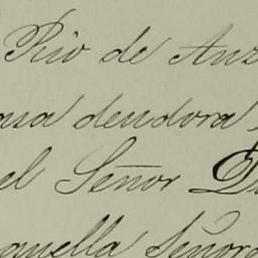 Rio de Anz
asa deudora
el Señor D
aquella Señora